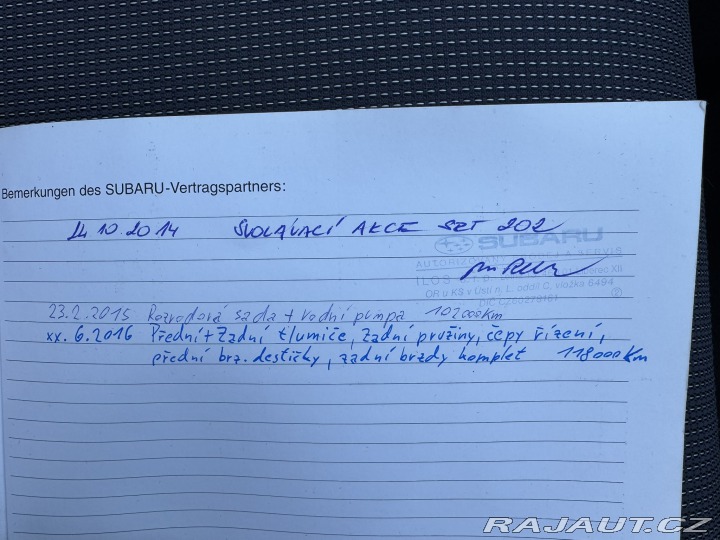 Bemerkungen des SUBARU-Vertragspartners:
14.10.2014 SVOLÁVACÍ AKCE SZT 202
SUBARU
AUTORIZOVANÝ SERVIS
OR u KS v Ústí n. L. oddíl C, vložka 6494
23.2.2015 Rozvodová sada + vodní pumpa 102000km
xx. 6.2016 Přední + Zadní tlumiče, Zadní pružiny, čepy řízení,
přední brz. destičky, zadní brzdy komplet 118000Km
RAJAUT.CZ